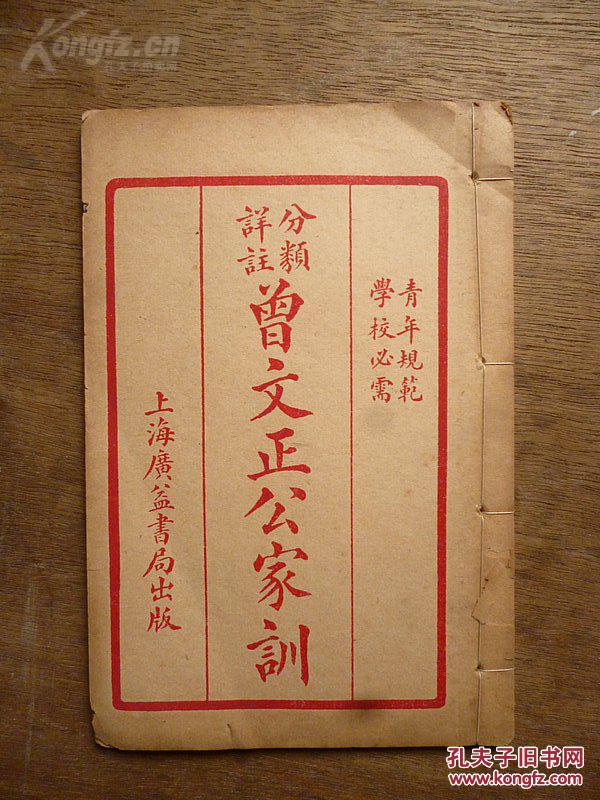 青年規範
學校必需
分類
詳註
曾文正公家訓
上海廣益書局出版
Kongfz.cn
孔夫子旧书网
www.kongfz.com